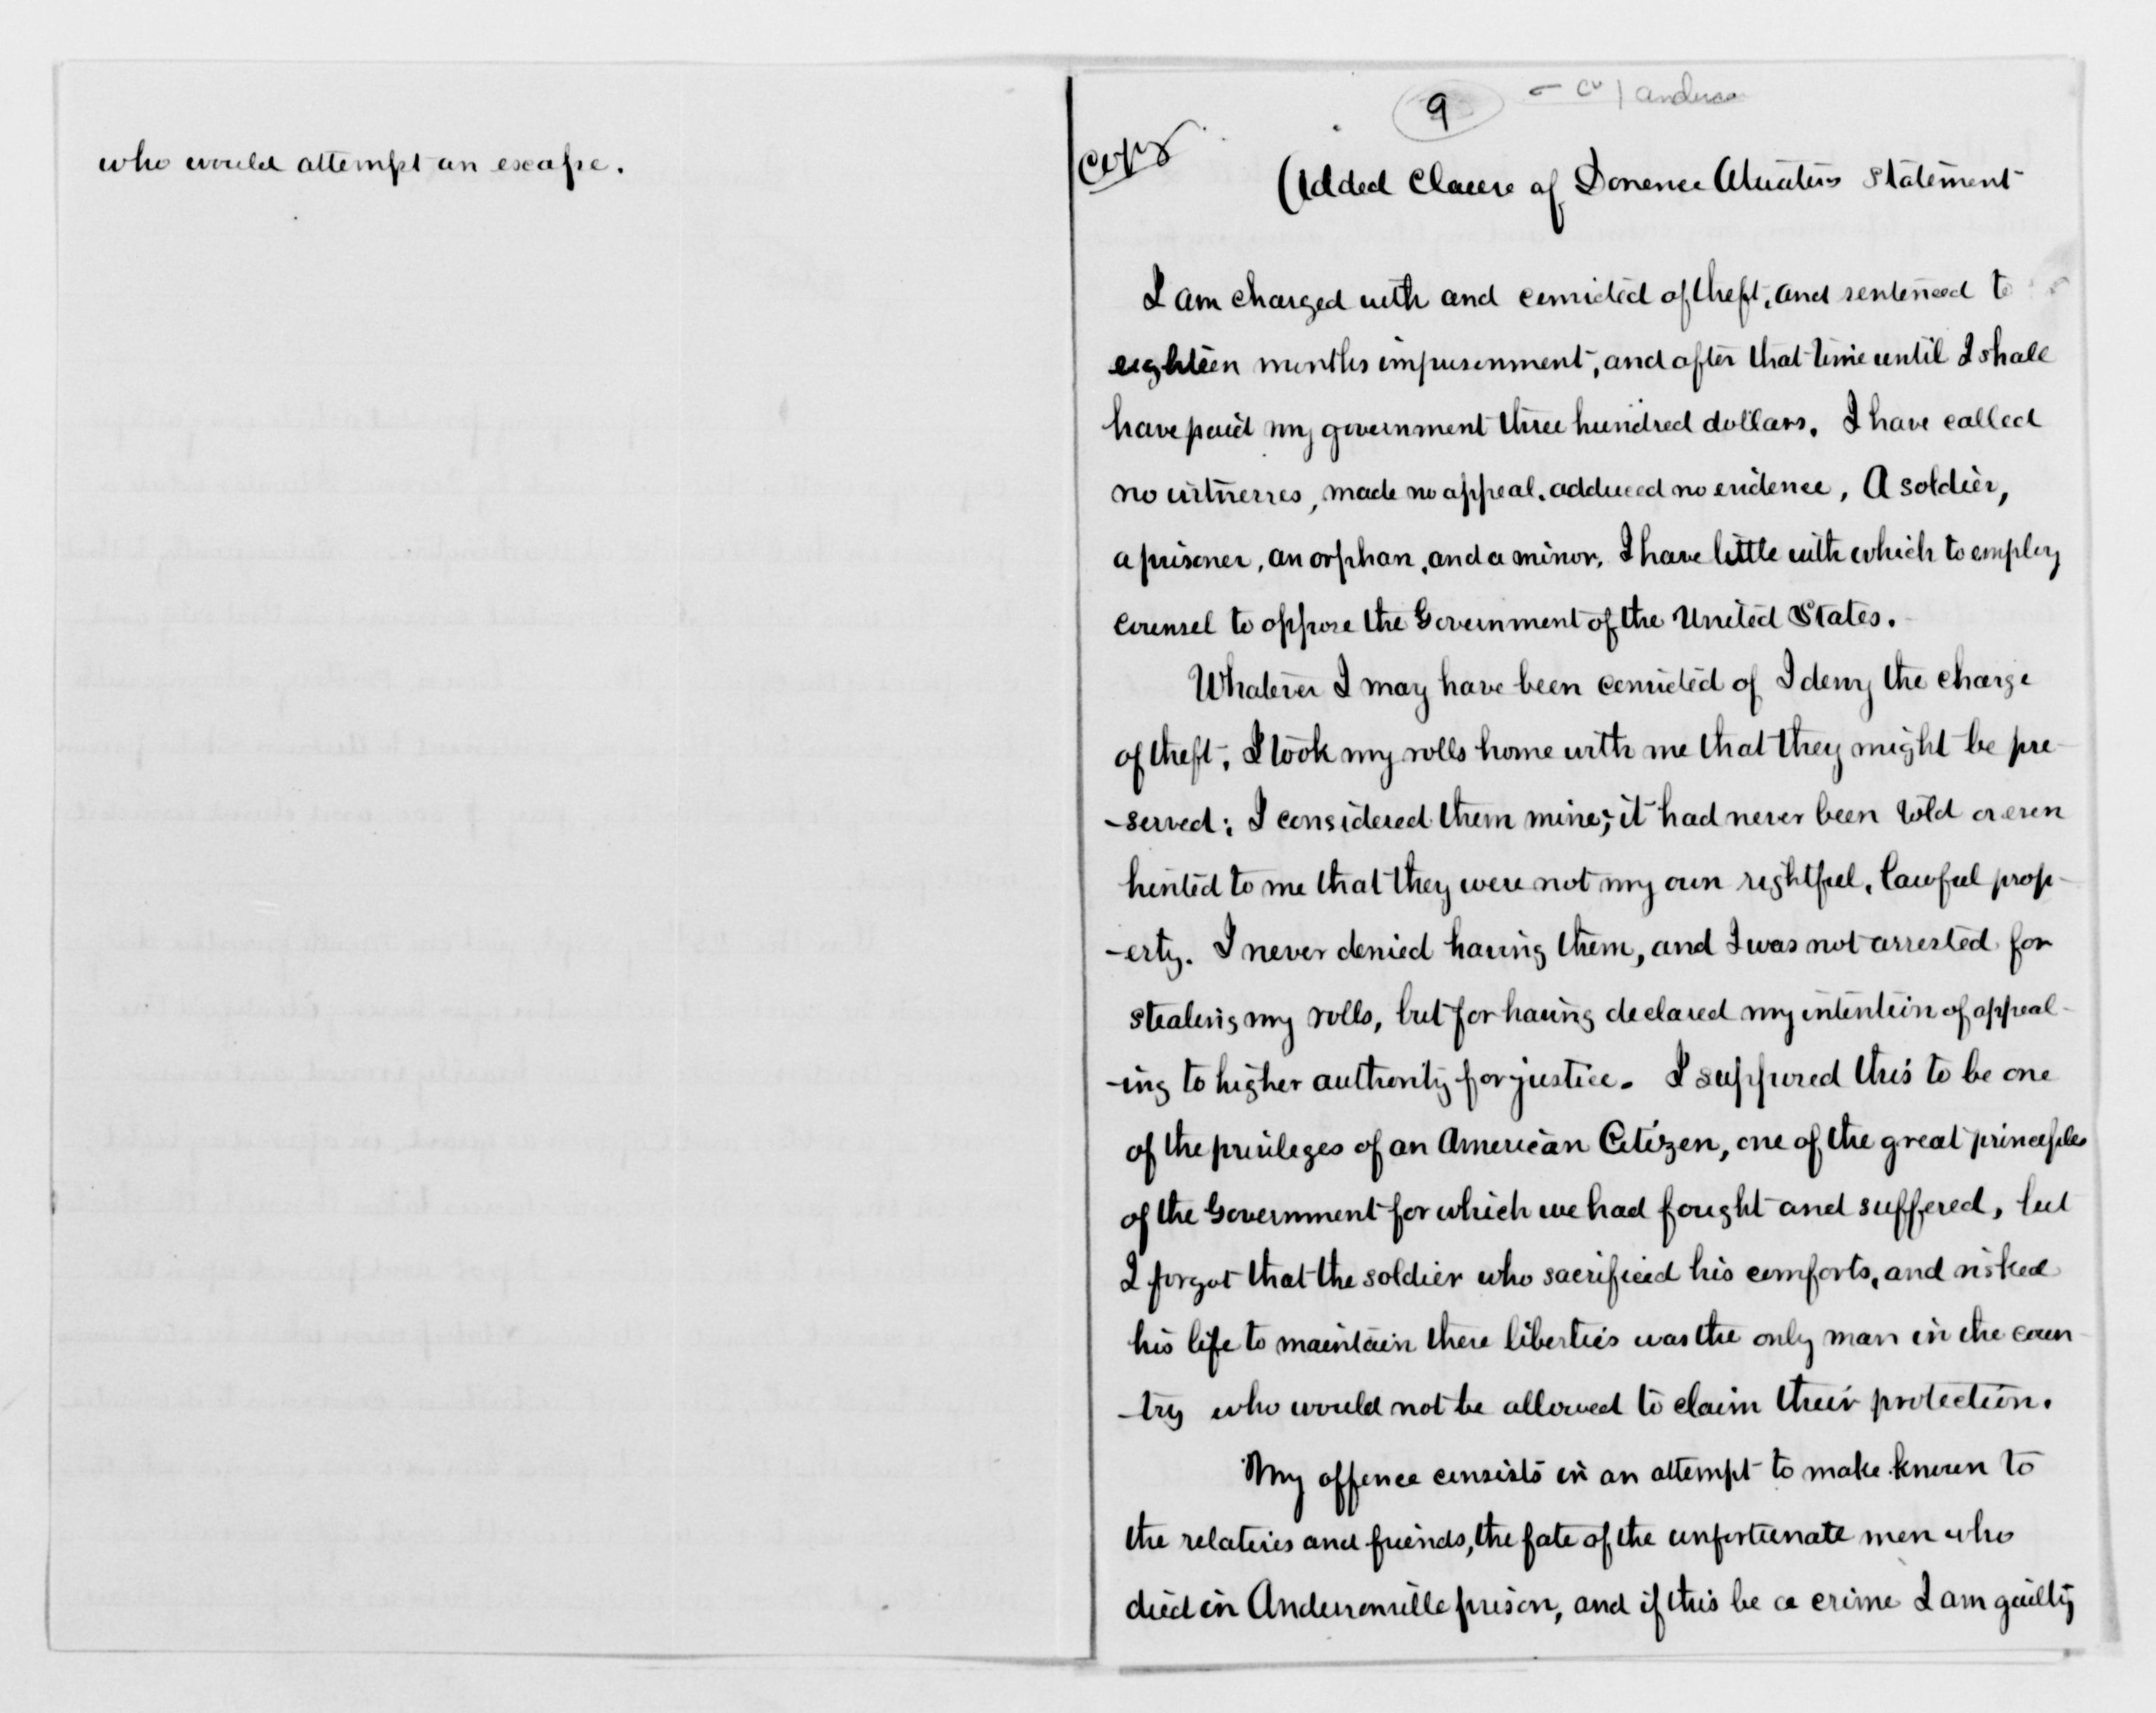 who would attempt an escape.
9
Copy
(Added Clause of Dorence Atwaters Statement
I am charged with and convicted of theft, and sentenced to
eighteen months imprisonment, and after that time until I shall
have paid my government three hundred dollars. I have called
no witnesses, made no appeal, adduced no evidence, A soldier,
a prisoner, an orphan, and a minor, I have little with which to employ
counsel to oppose the Government of the United States.
Whatever I may have been convicted of I deny the charge
of theft, I took my rolls home with me that they might be pre-
-served; I considered them mine; it had never been told or even
hinted to me that they were not my own rightful, lawful prop-
-erty. I never denied having them, and I was not arrested for
stealing my rolls, but for having declared my intention of appeal-
-ing to higher authority for justice. I supposed this to be one
of the privileges of an American Citizen, one of the great principles
of the Government for which we had fought and suffered, but
I forgot that the soldier who sacrificed his comforts, and risked
his life to maintain these liberties was the only man in the coun-
-try who would not be allowed to claim their protection.
My offence consists in an attempt to make known to
the relatives and friends, the fate of the unfortunate men who
died in Andersonville prison, and if this be a crime I am guilty